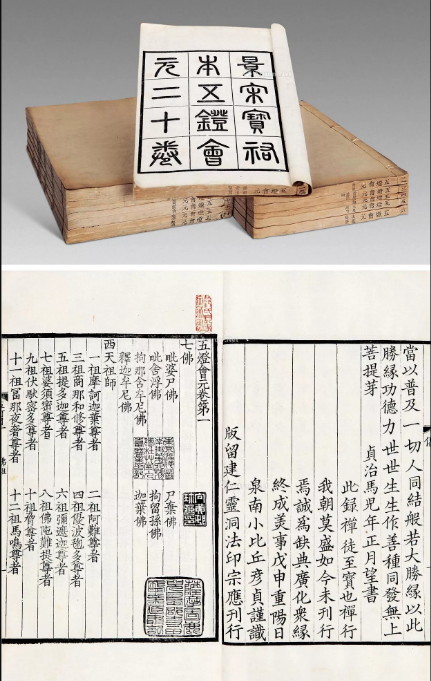 景宋寶祐
本五鐙會
元二十卷
當以普及一切人同結般若大勝緣以此
勝緣功德力世世生生作善種同發無上
菩提芽 貞治馬兒年正月望書
此録禪徒至寶也禪行
我朝莫盛如今未刊行
焉誠為缺典廣化衆緣
終成美事戊申重陽日
泉南小比丘彥貞謹識
版留建仁靈洞法印宗應刊行
五燈會元卷第一
七佛
毗婆尸佛 尸棄佛
毗舍浮佛 拘留孫佛
拘那含牟尼佛 迦葉佛
釋迦牟尼佛
西天祖師
一祖摩訶迦葉尊者 二祖阿難尊者
三祖商那和修尊者 四祖優波毱多尊者
五祖提多迦尊者 六祖彌遮迦尊者
七祖婆須蜜尊者 八祖佛陀難提尊者
九祖伏馱蜜多尊者 十祖脅尊者
十一祖富那夜奢尊者 十二祖馬鳴尊者